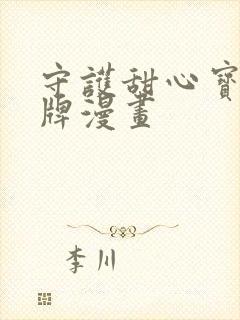 守護甜心寶
牌漫畫
李川